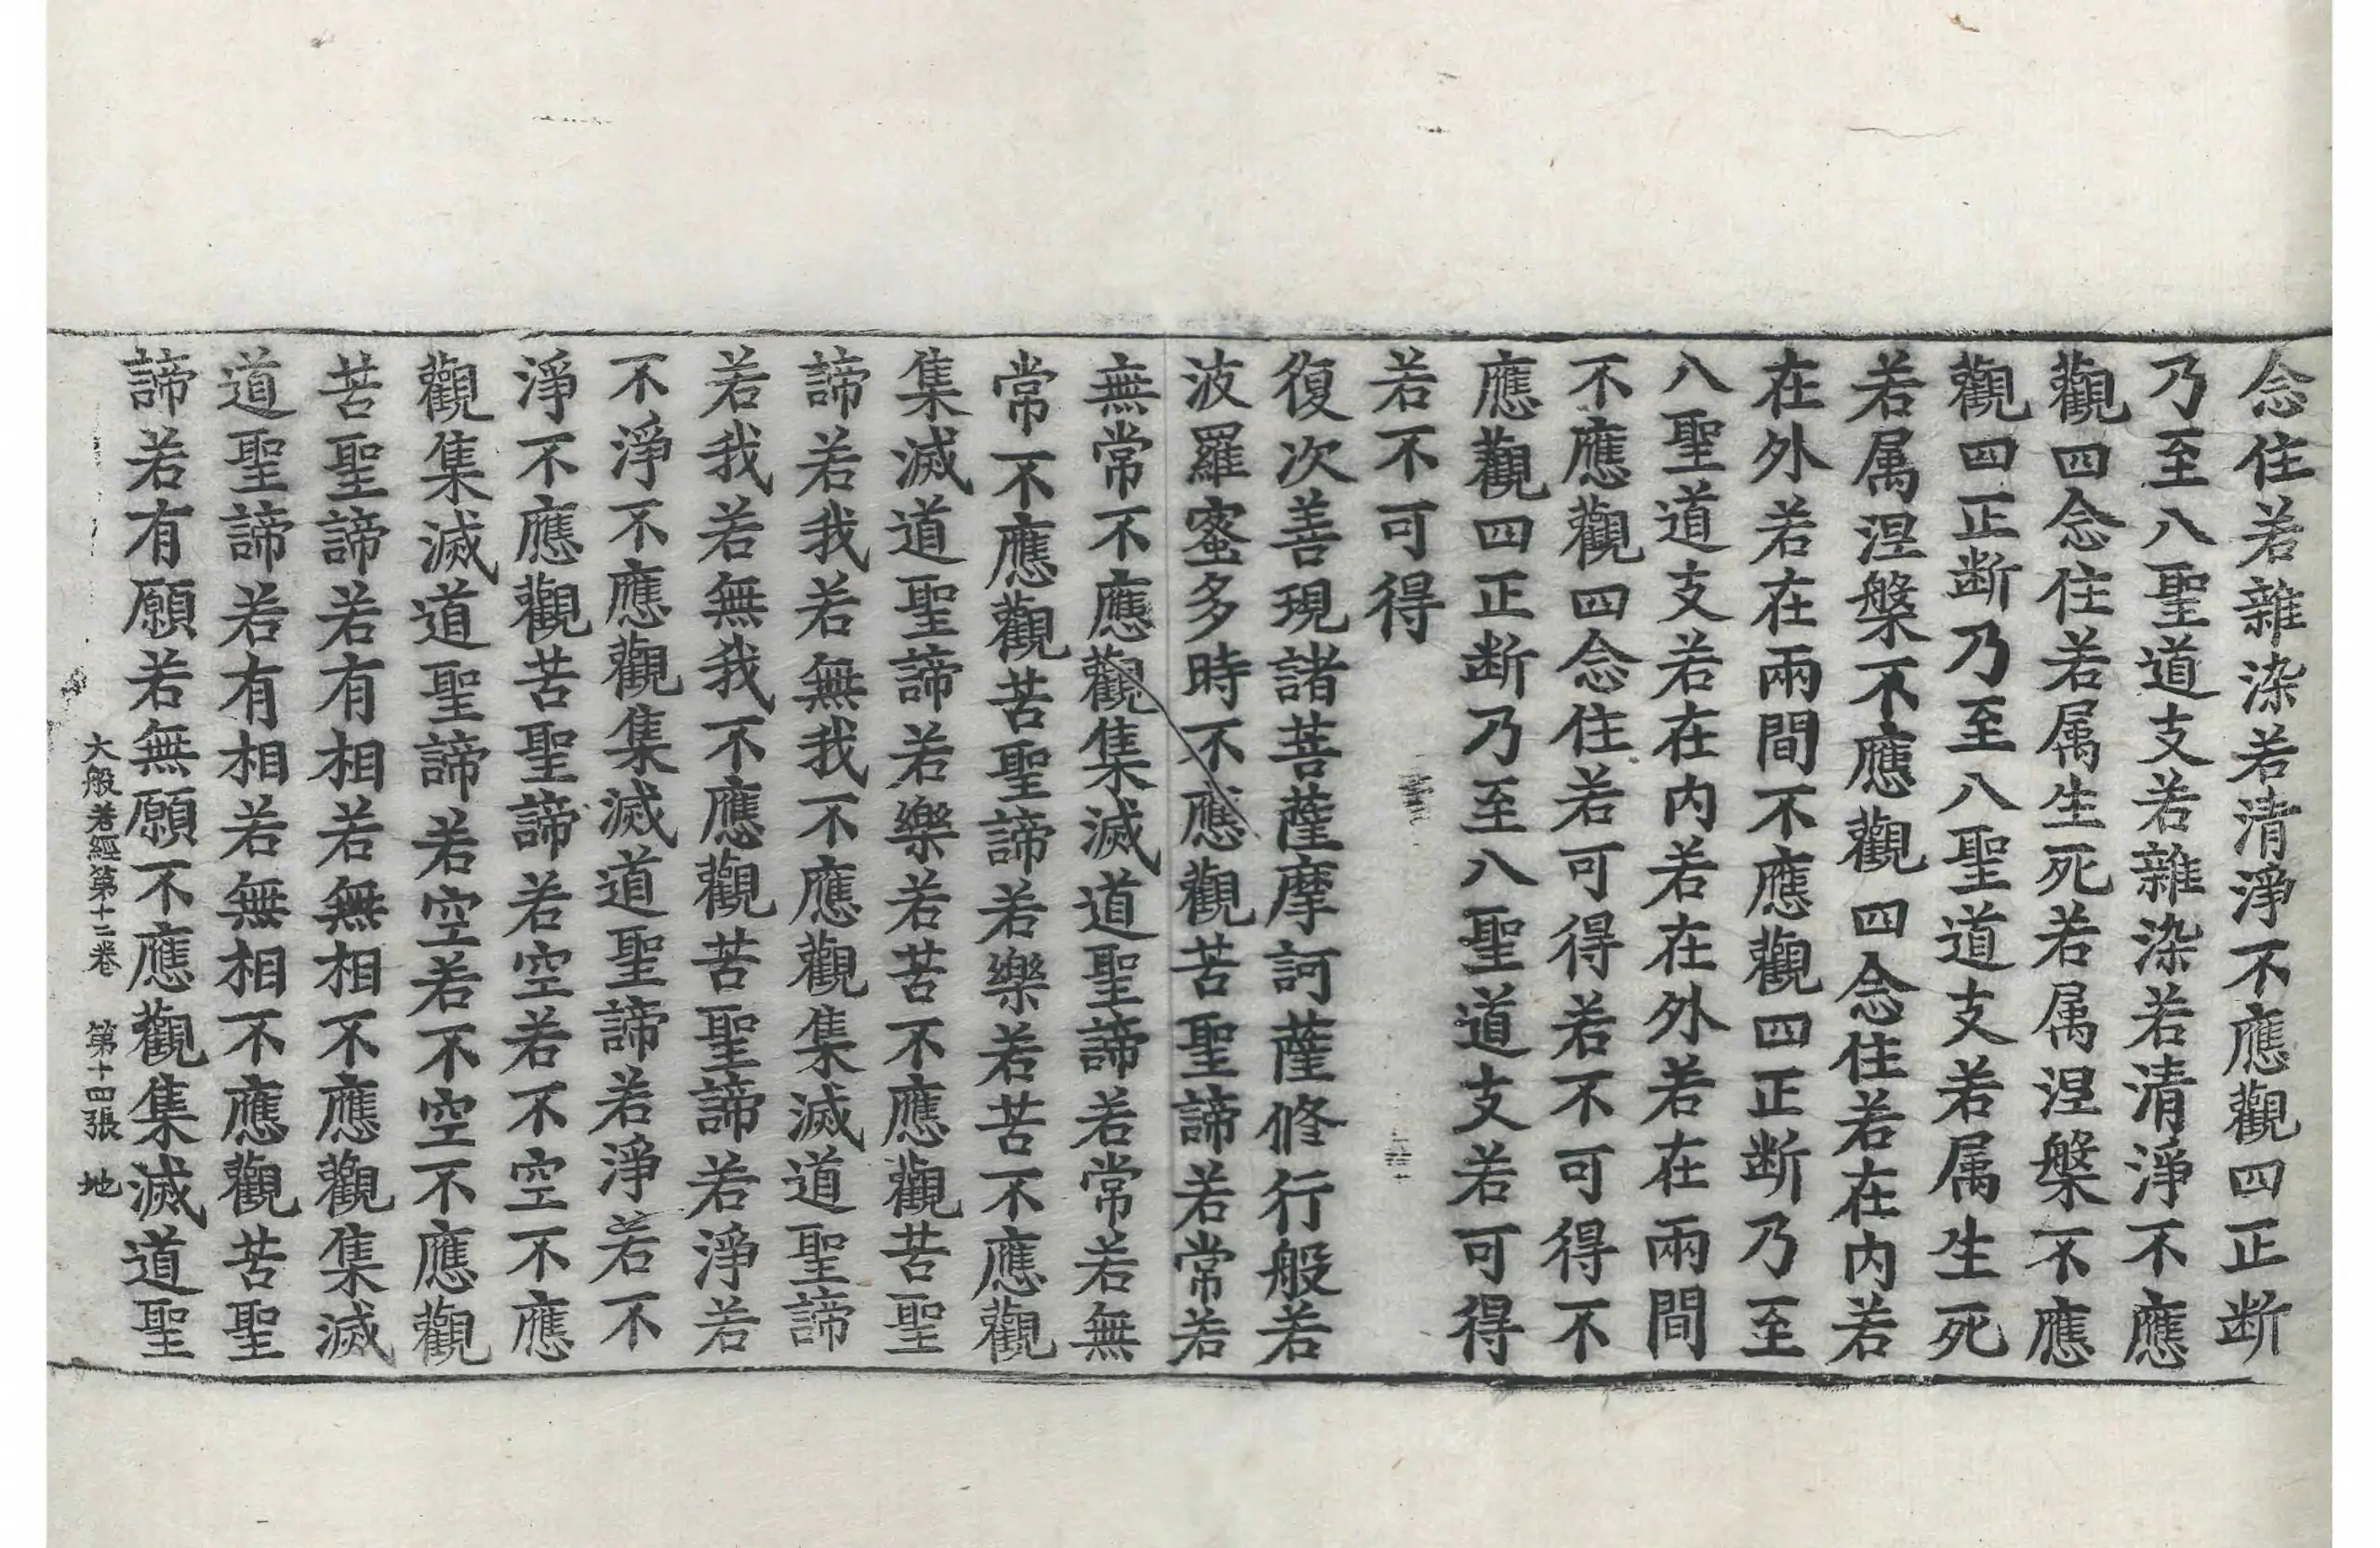 念住若雜染若清淨不應觀四正断
乃至八聖道支若雜染若清淨不應
觀四念住若属生死若属涅槃不應
觀四正断乃至八聖道支若属生死
若属涅槃不應觀四念住若在内若
在外若在兩間不應觀四正断乃至
八聖道支若在内若在外若在兩間
不應觀四念住若可得若不可得不
應觀四正断乃至八聖道支若可得
若不可得
復次善現諸菩薩摩訶薩修行般若
波羅蜜多時不應觀苦聖諦若常若
無常不應觀集滅道聖諦若常若無
常不應觀苦聖諦若樂若苦不應觀
集滅道聖諦若樂若苦不應觀苦聖
諦若我若無我不應觀集滅道聖諦
若我若無我不應觀苦聖諦若淨若
不淨不應觀集滅道聖諦若淨若不
淨不應觀苦聖諦若空若不空不應
觀集滅道聖諦若空若不空不應觀
苦聖諦若有相若無相不應觀集滅
道聖諦若有相若無相不應觀苦聖
諦若有願若無願不應觀集滅道聖
大般若經第十二卷 第十四張 地